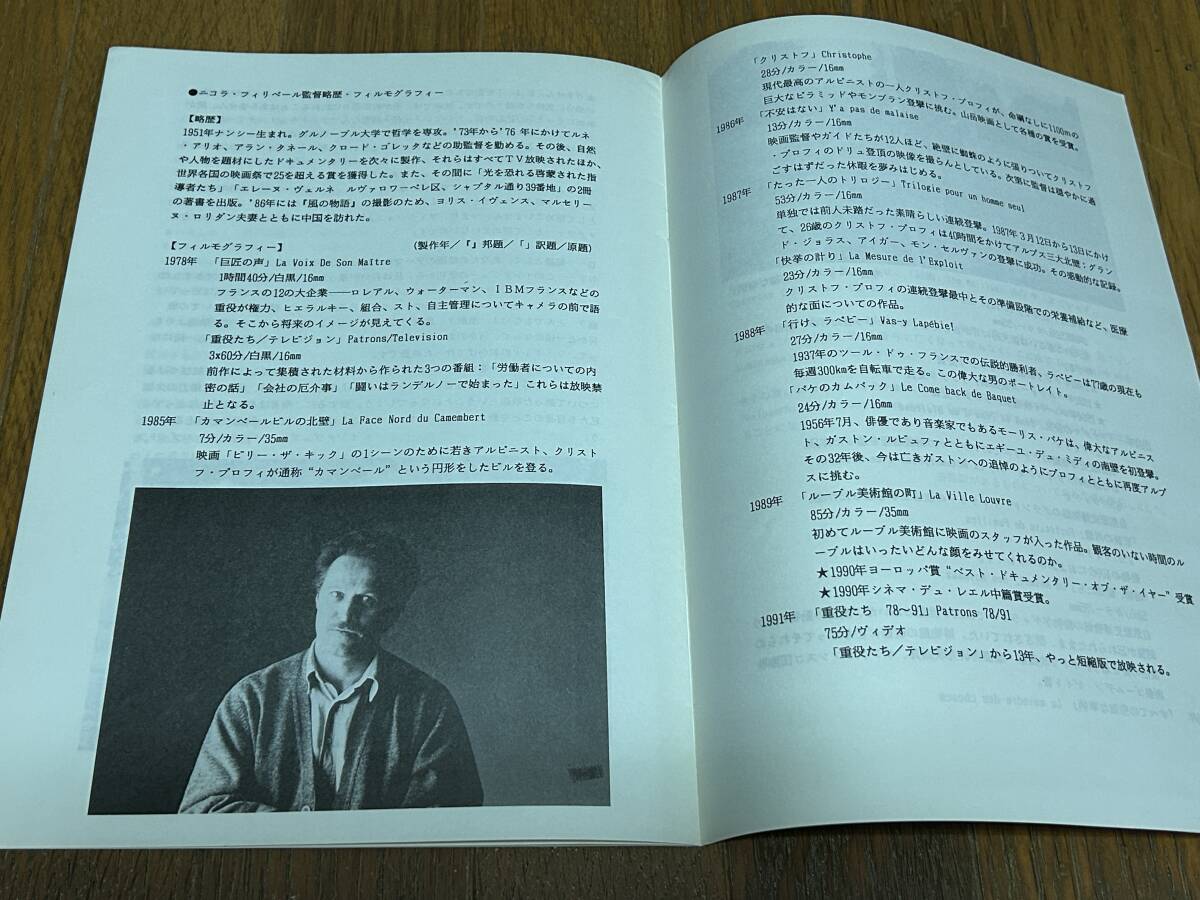 ●ニコラ・フィリベール監督略歴・フィルモグラフィー
【略歴】
1951年ナンシー生まれ。グルノーブル大学で哲学を専攻。'73年から'76 年にかけてルネ
・アリオ、アラン・タネール、クロード・ゴレッタなどの助監督を勤める。その後、自然
や人物を題材にしたドキュメンタリーを次々に製作、それらはすべてＴＶ放映されたほか、
世界各国の映画祭で25を超える賞を獲得した。また、その間に「光を恐れる啓蒙された指
導者たち」「エレーヌ・ヴェルネ　ルヴァロワーペレ区、シャプタル通り39番地」の2冊
の著書を出版。'86年には『風の物語』の撮影のため、ヨリス・イヴェンス、マルセリー
ヌ・ロリダン夫妻とともに中国を訪れた。
【フィルモグラフィー】　（製作年／『』邦題／「」訳題／原題）
1978年　「巨匠の声」La Voix De Son Maître
1時間40分/白黒/16mm
フランスの12の大企業――ロレアル、ウォーターマン、ＩＢＭフランスなどの
重役が権力、ヒエラルキー、組合、スト、自主管理についてキャメラの前で語
る。そこから将来のイメージが見えてくる。
「重役たち／テレビジョン」Patrons/Television
3x60分/白黒/16mm
前作によって集積された材料から作られた3つの番組：「労働者についての内
密の話」「会社の厄介事」「闘いはランデルノーで始まった」これらは放映禁
止となる。
1985年　「カマンベールビルの北壁」La Face Nord du Camembert
7分/カラー/35mm
映画「ビリー・ザ・キック」の1シーンのために若きアルピニスト、クリスト
フ・プロフィが通称“カマンベール”という円形をしたビルを登る。
「クリストフ」Christophe
28分/カラー/16mm
現代最高のアルピニストの一人クリストフ・プロフィが、命綱なしに1100mの
巨大なピラミッドやモンブラン登攀に挑む。山岳映画として各種の賞を受賞。
1986年　「不安はない」Y'a pas de malaise
13分/カラー/16mm
映画監督やガイドたちが12人ほど、絶壁に蜘蛛のように張りついてクリストフ
・プロフィのドリュ登頂の映像を撮らんとしている。次第に監督は穏やかに過
ごすはずだった休暇を夢みはじめる。
1987年　「たった一人のトリロジー」Trilogie pour un homme seul
53分/カラー/16mm
単独では前人未踏だった素晴らしい連続登攀。1987年3月12日から13日にかけ
て、26歳のクリストフ・プロフィは40時間をかけてアルプス三大北壁；グラン
ド・ジョラス、アイガー、モン・セルヴァンの登攀に成功。その感動的な記録。
「快挙の計り」La Mesure de l'Exploit
23分/カラー/16mm
クリストフ・プロフィの連続登攀最中とその準備段階での栄養補給など、医療
的な面についての作品。
1988年　「行け、ラペビー」Vas-y Lapébie!
27分/カラー/16mm
1937年のツール・ドゥ・フランスでの伝説的勝利者、ラペビーは77歳の現在も
毎週300kmを自転車で走る。この偉大な男のポートレイト。
「バケのカムバック」Le Come back de Baquet
24分/カラー/16mm
1956年7月、俳優であり音楽家でもあるモーリス・バケは、偉大なアルピニス
ト、ガストン・ルビュファとともにエギーユ・デュ・ミディの南壁を初登攀。
その32年後、今は亡きガストンへの追悼のようにプロフィとともに再度アルプ
スに挑む。
1989年　「ルーブル美術館の町」La Ville Louvre
85分/カラー/35mm
初めてルーブル美術館に映画のスタッフが入った作品。観客のいない時間のル
ーブルはいったいどんな顔をみせてくれるのか。
★1990年ヨーロッパ賞“ベスト・ドキュメンタリー・オブ・ザ・イヤー”受賞
★1990年シネマ・デュ・レエル中篇賞受賞。
1991年　「重役たち　78～91」Patrons 78/91
75分/ヴィデオ
「重役たち／テレビジョン」から13年、やっと短縮版で放映される。